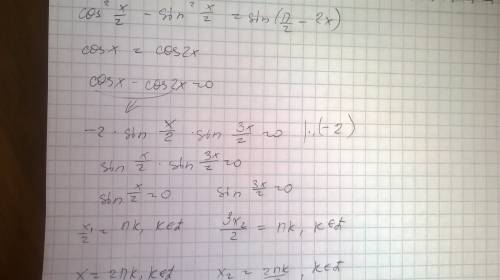 cos² x/2 - sin² x/2 = sin(π/2 - 2x)
cosx = cos2x
cosx - cos2x = 0
-2 · sin x/2 · sin 3x/2 = 0 |:(-2)
sin x/2 · sin 3x/2 = 0
sin x/2 = 0 sin 3x/2 = 0
x₁/2 = πk, k∈Z 3x₂/2 = πk, k∈Z
x = 2πk, k∈Z x₂ = 2πk, k∈Z